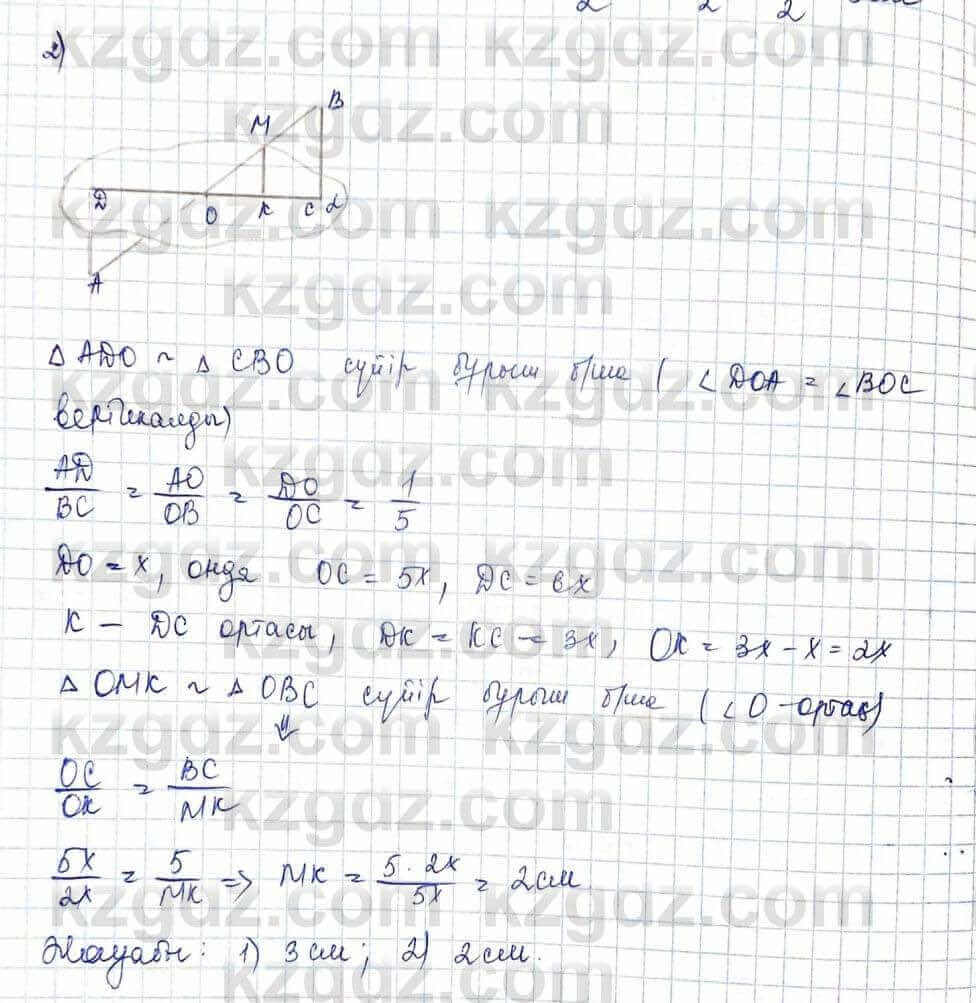 2)
B
M
D O K C α
A
Δ ADO ~ Δ CBO сүйір бұрыш б/ша ( ∠DOA = ∠BOC
вертикалды)
AD/BC = AO/OB = DO/OC = 1/5
DO = x, онда OC = 5x, DC = 6x
K – DC ортасы, DK = KC = 3x, OK = 3x – x = 2x
Δ OMK ~ Δ OBC сүйір бұрыш б/ша (∠O – ортақ)
⇓
OC/OK = BC/MK
5x/2x = 5/MK => MK = 5 · 2x/5x = 2 см
Жауабы: 1) 3 см; 2) 2 см.
kzgdz.com